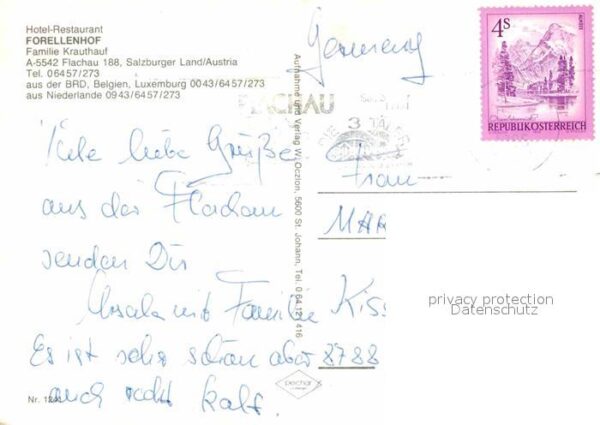 Hotel-Restaurant
FORELLENHOF
Familie Krauthauf
A-5542 Flachau 188, Salzburger Land/Austria
Tel. 06457/273
aus der BRD, Belgien, Luxemburg 0043/6457/273
aus Niederlande 0943/6457/273
Viele liebe Grüße
aus der Flachau
senden Dir
Ursula mit Familie
Es ist sehr schön aber
auch recht kalt.
Nr. 1241
Aufnahme und Verlag W. Oczlon, 5600 St. Johann, Tel. 0 64 12/ 416
pechar
Germany
4S
ALMSEE
REPUBLIK ÖSTERREICH
FLACHAU
Frau
MAR
Kis
8788
privacy protection
Datenschutz